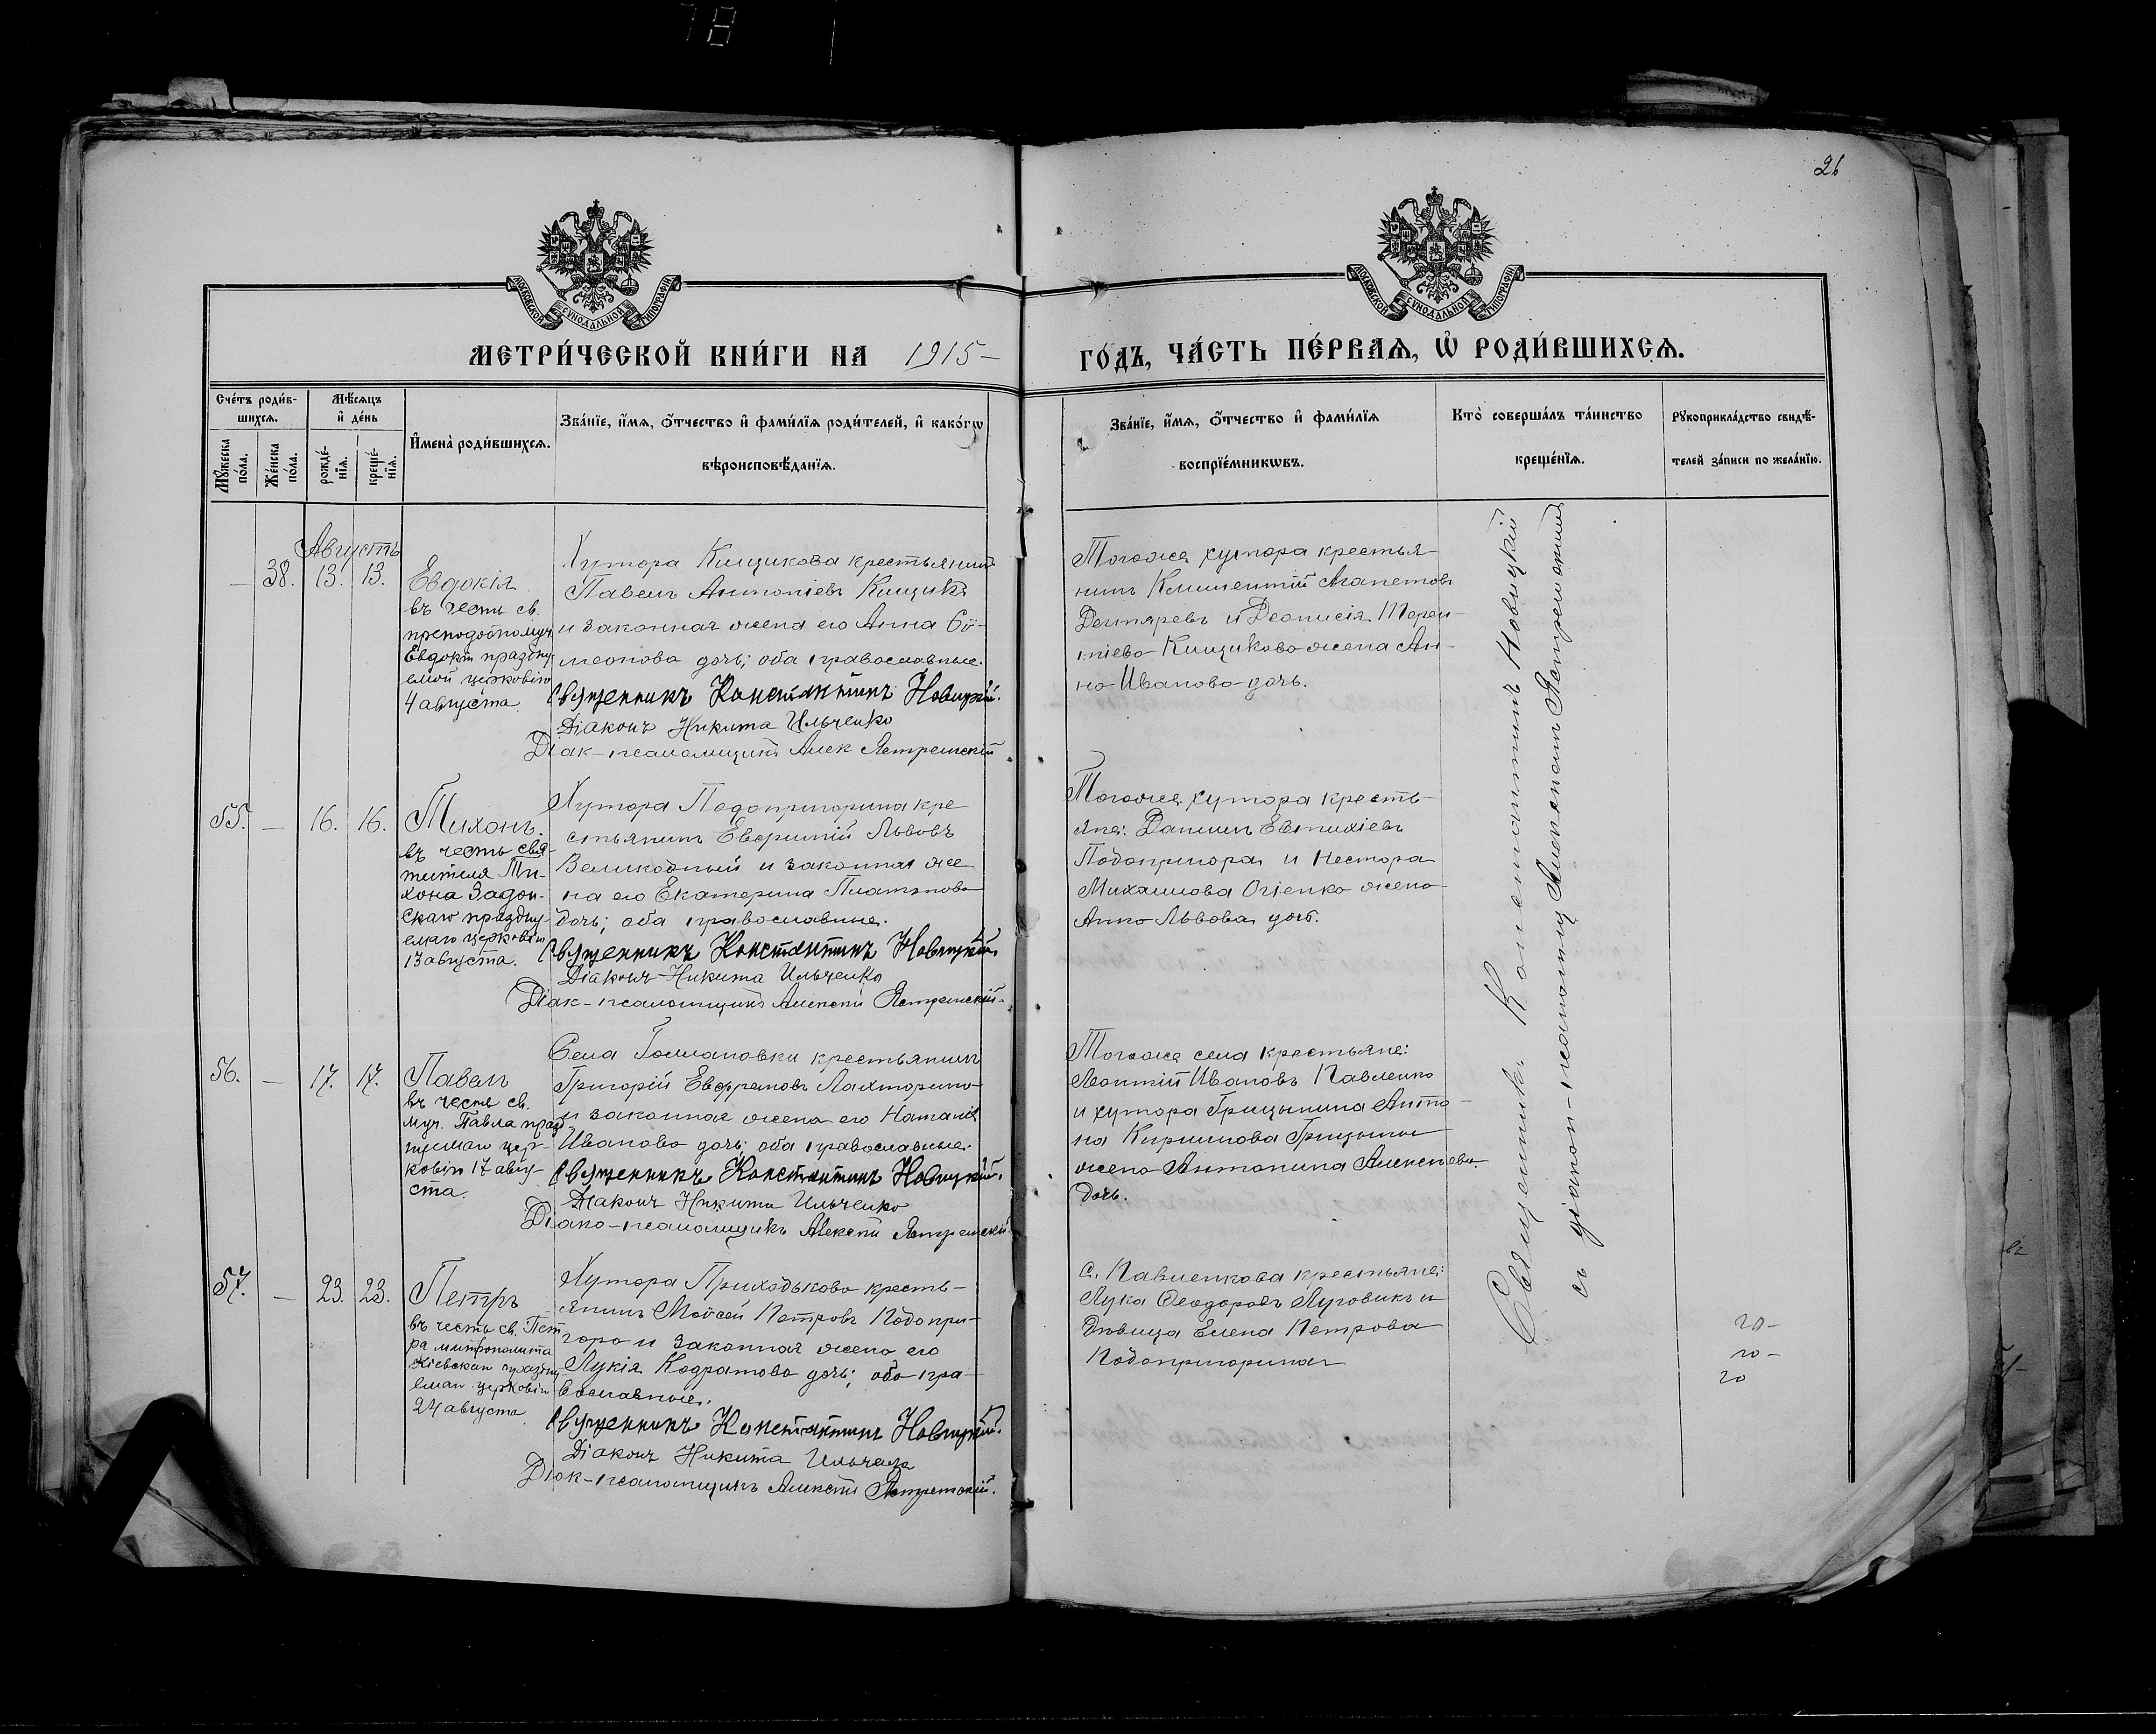 78
26
МОСКОВСКОЙ СѴНОДАЛЬНОЙ ТИПОГРАФІИ
МОСКОВСКОЙ СѴНОДАЛЬНОЙ ТИПОГРАФІИ
МЕТРИ́ЧЕСКОЙ КНИ́ГИ НА 1915 –
ГО́ДЪ, ЧА́СТЬ ПЕ́РВАѦ, Ѡ҆ РОДИ́ВШИХСѦ.
Сче́тъ роди́в-
шихсѧ.
Мꙋ́жеска по́ла.
Же́нска по́ла.
Мѣ́сѧцъ
и҆ де́нь
рожде́-
нїѧ.
креще́-
нїѧ.
И҆мена̀ роди́вшихсѧ.
Зва́нїе, и҆́мѧ, ѻ҆́тчество и҆ фами́лїѧ роди́телей, и҆ како́гѡ
вѣроисповѣ́данїѧ.
Зва́нїе, и҆́мѧ, ѻ҆́тчество и҆ фами́лїѧ
воспрїе́мникѡвъ.
Кто̀ соверша́лъ та́инство
креще́нїѧ.
Рꙋкоприкла́дство свидѣ́-
телей за́писи по жела́нїю.
Августъ
– 38. 13. 13.
Евдокія
въ честь св.
преподобномуч.
Евдокіи праздну-
емой церковію
4 августа.
Хутора Кищикова крестьянинъ
Павелъ Антоніевъ Кищикъ
и законная жена его Анна Сѵ-
меонова дочь; оба православные.
Священникъ Константинъ Новицкій.
Діаконъ Никита Ильченко
Діак-псаломщикъ Алек Ястремскій
Тогоже хутора крестья-
нинъ Климентій Агапетовъ
Дегтяревъ и Терен-
тіева Кищикова жена Ан-
на Иванова дочь.
55. – 16. 16.
Тихонъ.
въ честь свя-
тителя Ти-
хона Задон-
скаго праздну-
емаго церковію
13 августа.
Хутора Подопригорина кре
стьянинъ Евфимій Львовъ
Великодный и законная же
на его Екатерина Платонова
дочь; оба православные.
Священникъ Константинъ Новицкій.
Діаконъ Никита Ильченко
Діак-псаломщикъ Алексій Ястремскій.
Тогоже хутора кресть-
яне: Даніилъ Евтихіевъ
Подопригора и Нестора
Михаилова Огіенко жена
Анна Львова дочь.
56. – 17. 17.
Павелъ
въ честь св.
муч. Павла празд-
нуемаго цер-
ковію 17 авгу-
ста.
Села крестьянинъ
Григорій Евфремовъ
и законная жена его Наталія
Иванова дочь; оба православные.
Священникъ Константинъ Новицкій.
Діаконъ Никита Ильченко
Діако-псаломщикъ Алексій Ястремскій.
Тогоже села крестьяне:
Леонтій Ивановъ Павленко
и хутора Грицынина Анто-
на Кириллова Грицыны
жена Антонина Алексіева
дочь.
57. – 23. 23.
Петръ
въ честь св. Пет
ра митрополита
Кіевскаго праздну-
емаго церковію
24 августа.
Хутора Приходькова кресть-
янинъ Мойсей Петровъ Подопри-
гора и законная жена его
Лукія Кодратова дочь; оба пра-
вославные.
Священникъ Константинъ Новицкій.
Діаконъ Никита Ильченко
Діак-псаломщикъ Алексій Ястремскій.
с. Павленкова крестьяне:
Лука Ѳеодоровъ Луговикъ и
дѣвица Елена Петрова
Подопригорина
Священникъ Константинъ Новицкій
съ діакон-псаломщ Алексіемъ Ястремскимъ
20 –
10 –
20